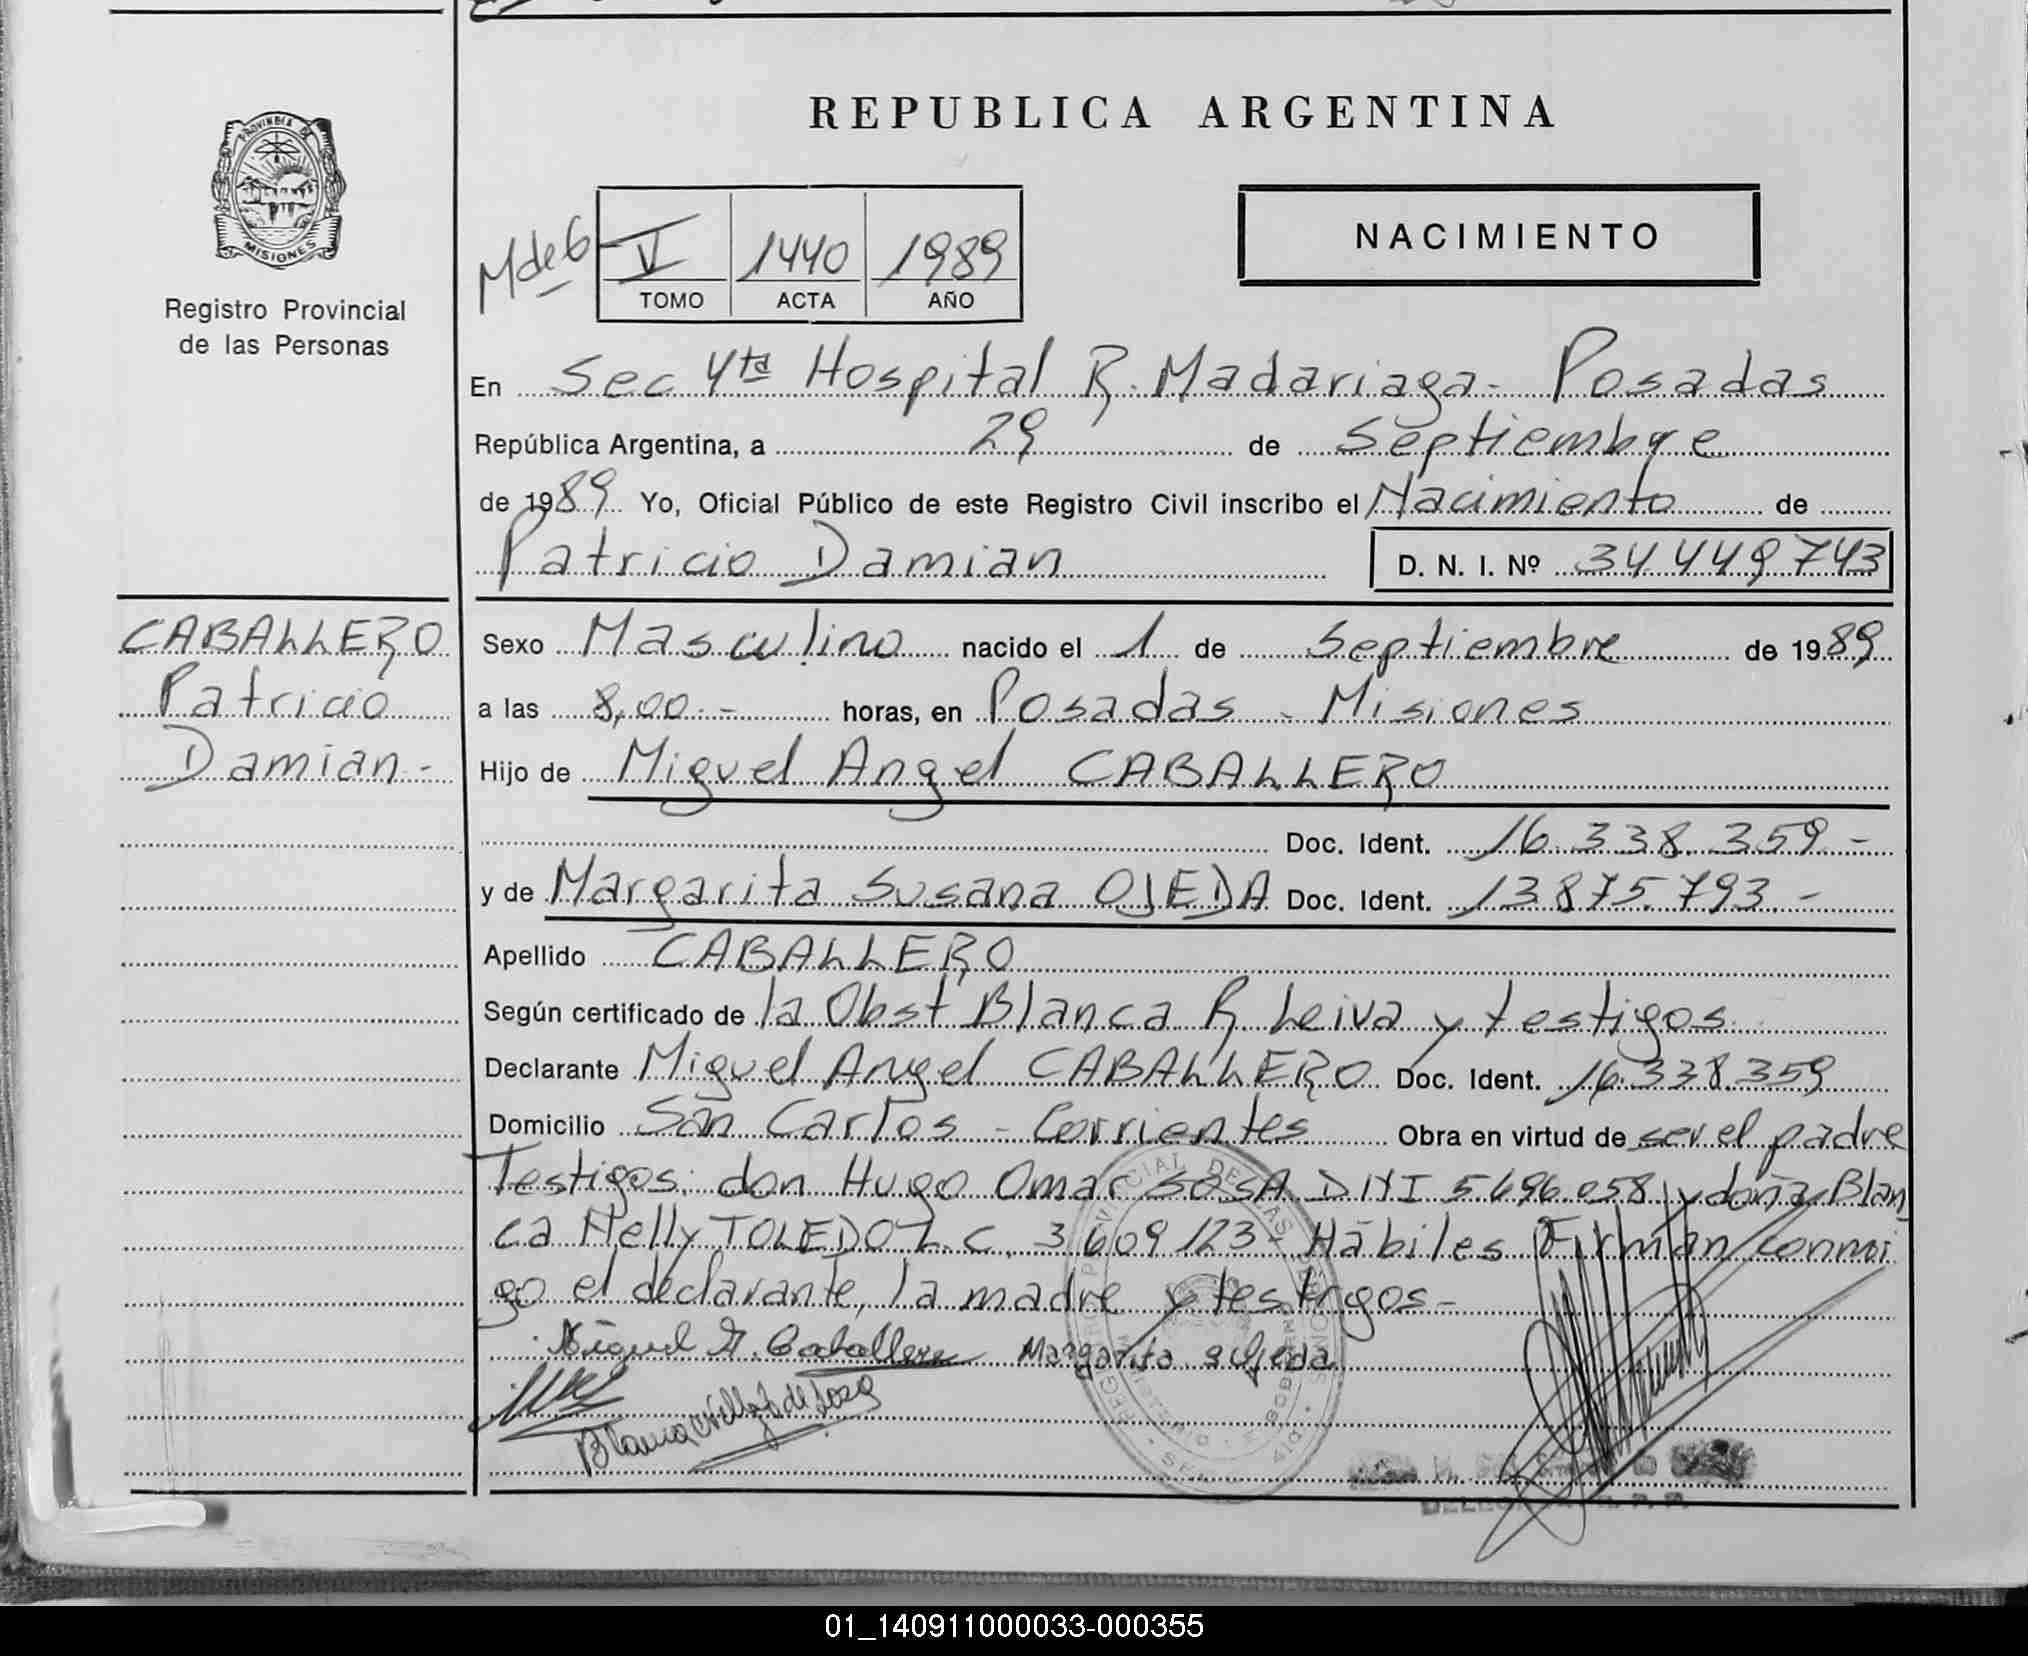 REPUBLICA ARGENTINA
PROVINCIA DE
MISIONES
Registro Provincial
de las Personas
NACIMIENTO
V 1440 1989
TOMO ACTA AÑO
En Sec 4ta Hospital R. Madariaga - Posadas
República Argentina, a 29 de Septiembre
de 1989 Yo, Oficial Público de este Registro Civil inscribo el Nacimiento de
Patricio Damian D. N. I. Nº 34 449 743
CABALLERO
Patricio
Damian -
Sexo Masculino nacido el 1 de Septiembre de 1989
a las 8,00 - horas, en Posadas - Misiones
Hijo de Miguel Angel CABALLERO
Doc. Ident. 16.338.359 -
y de Margarita Susana OJEDA Doc. Ident. 13875.793 -
Apellido CABALLERO
Según certificado de la Obst Blanca R Leiva y testigos
Declarante Miguel Angel CABALLERO Doc. Ident. 16.338.359
Domicilio San Carlos - Corrientes Obra en virtud de ser el padre
Testigos: don Hugo Omar SOSA DNI 5.696.058 y doña Blan
ca Nelly TOLEDO L.C. 3 609 123 - Hábiles Firman conmi
go el declarante, la madre y testigos -
Miguel A. Caballero Margarita S Ojeda
Blanca Nelly T de Sosa
01_140911000033-000355